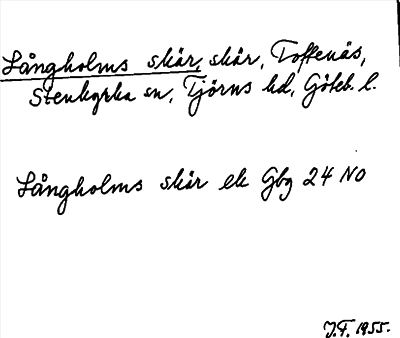 Långholms skär, skär, Toffenäs,
Stenkyrka sn, Tjörns hd, Göteb. l.
Långholms skär ek Gbg 24 NO
J.F. 1955.